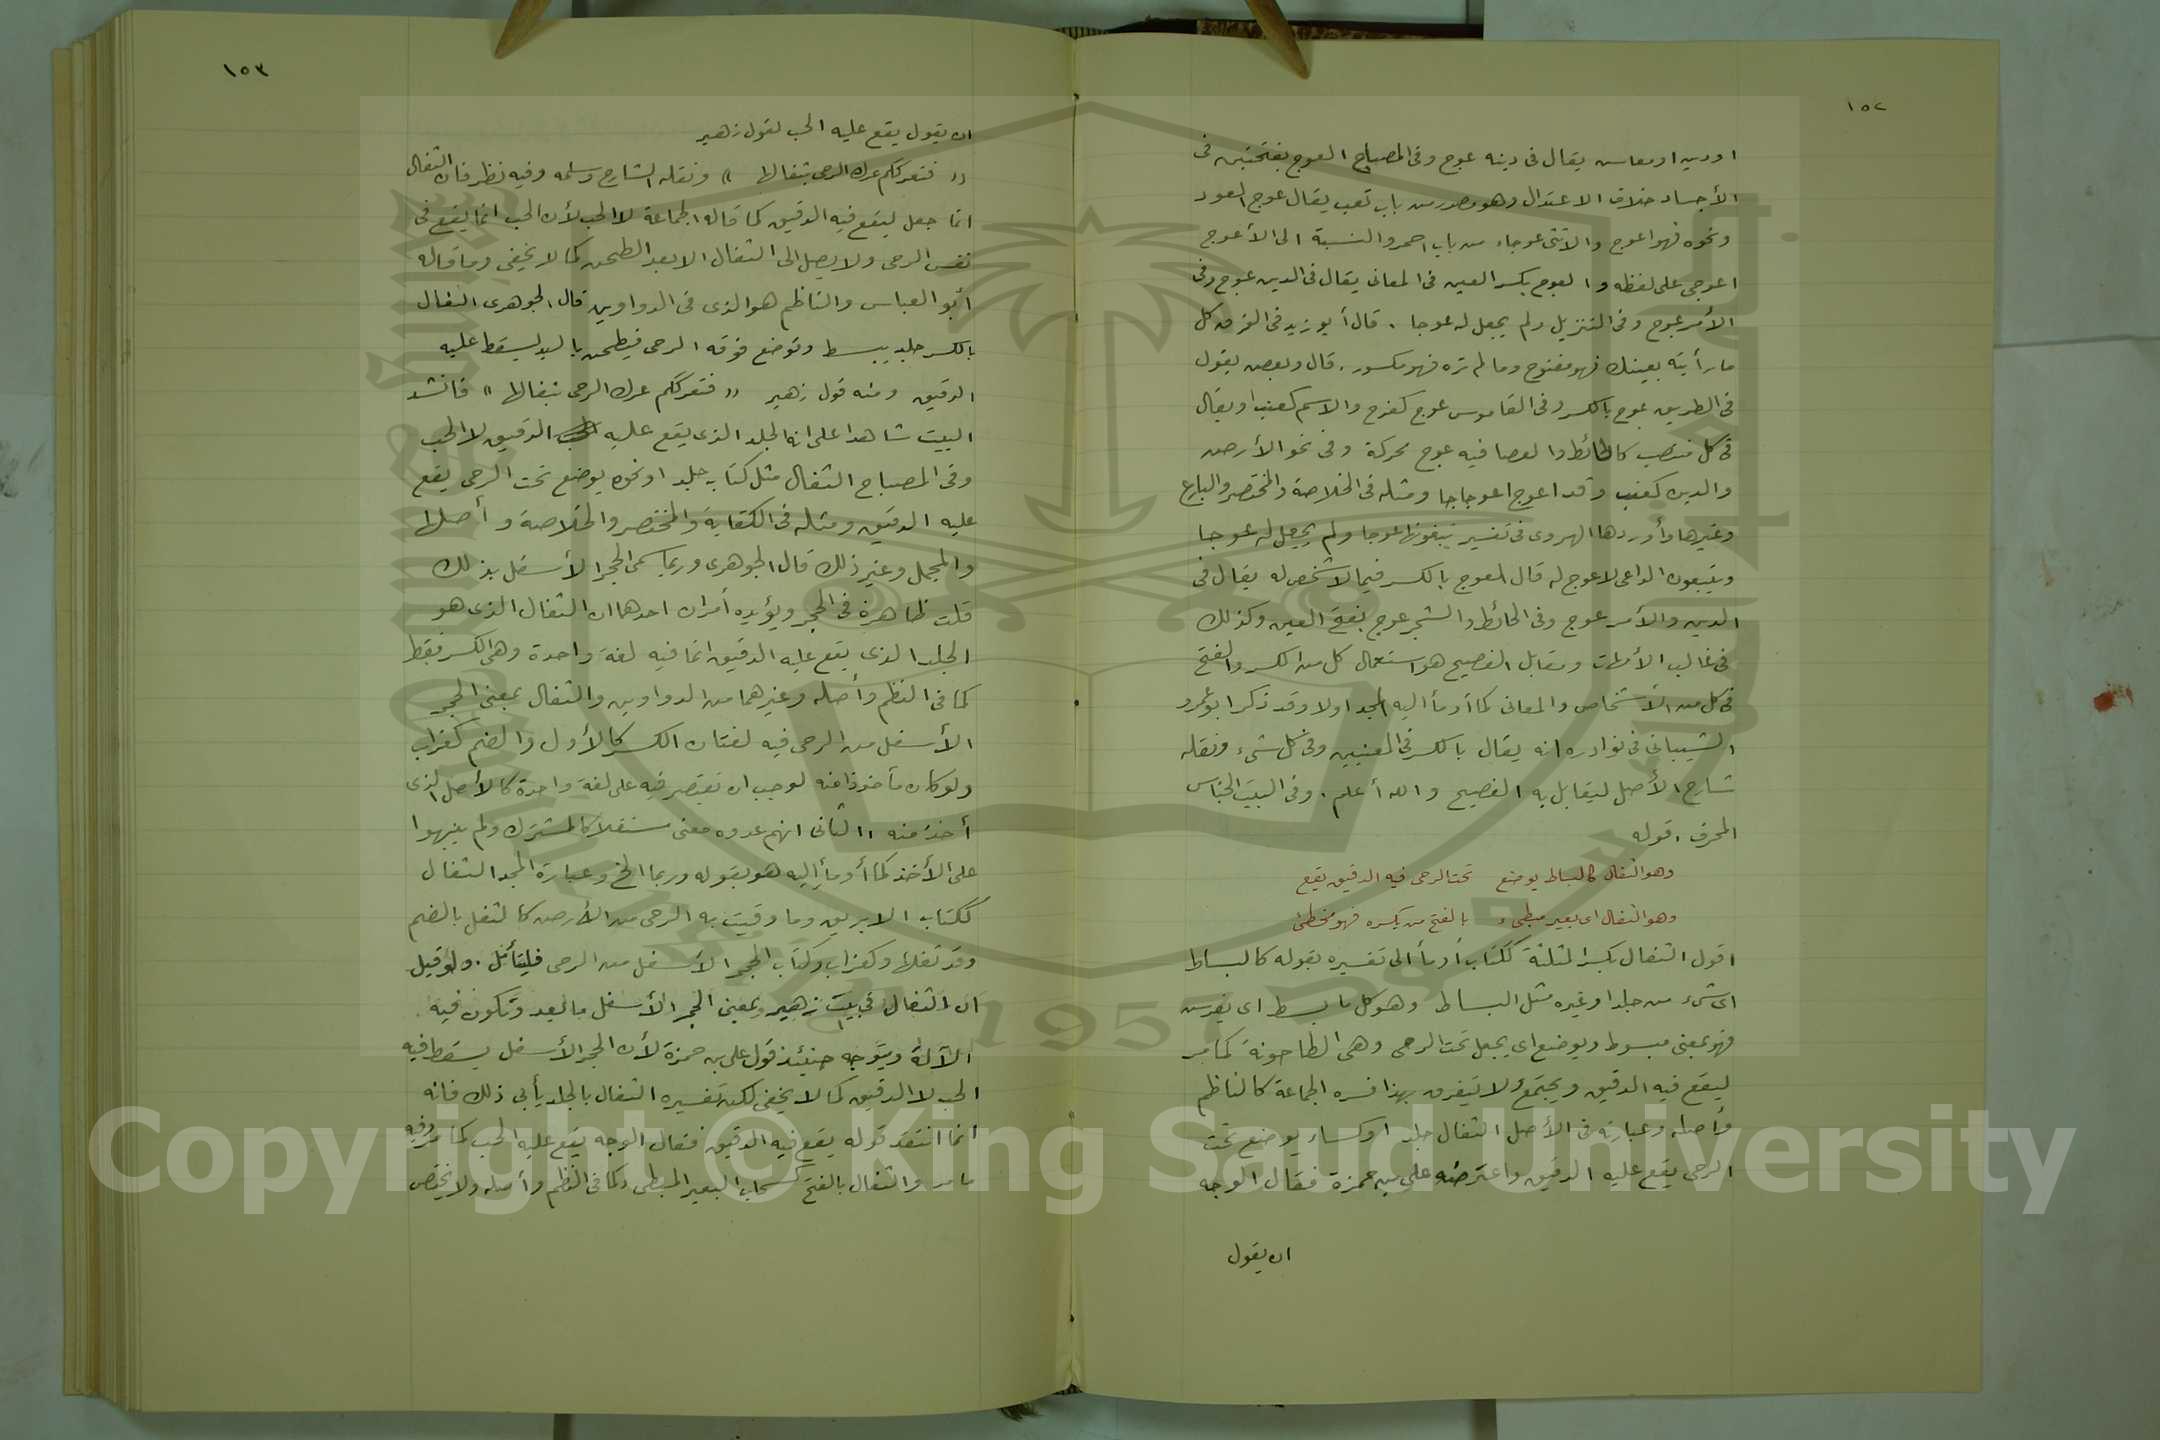 ١٥٢
او دين او معاس يقال فى دينه عوج وفى المصباح العوج بفتحتين فى
الأجساد خلاف الاعتدال وهو مصدر من باب تعب يقال عوج العود
ونحوه فهو اعوج والانثى عوجاء من باب احمر والنسبة الى الأعوج
اعوجى على لفظه و العوج بكسر العين فى المعانى يقال فى الدين عوج وفى
الأمر عوج وفى التنزيل ولم يجعل له عوجا . قال أبو زيد فى الفرق كل
ما رأيته بعينك فهو مفتوح وما لم تره فهو مكسور . قال وبعض يقول
فى الطريق عوج بالكسر وفى القاموس عوج كفرح والاسم كعنب او يقال
فى كل منتصب كالحائط والعصا فيه عوج محركة وفى نحو الأرض
والدين كعنب وقد اعوج اعوجاجا ومثله فى الخلاصة والمختصر والبارع
وغيرها وأوردها الهروى فى تفسير تبغونها عوجا ولم يجعل له عوجا
ويتبعون الداعى لا عوج له قال العوج بالكسر فيما لا شخص له يقال فى
الدين والأمر عوج وفى الحائط والشجر عوج بفتح العين وكذلك
فى غالب الأمهات ومقابل الفصيح هو استعمال كل من الكسر والفتح
فى كل من الأشخاص والمعانى كما أومأ اليه المجد اولا وقد ذكر ابو عمرو
الشيبانى فى نوادره انه يقال بالكسر فى المعنيين وفى كل شىء ونقله
شارح الأصل ليقابل به الفصيح والله أعلم . وفى البيت الجناس
المحرف . قوله
وهو الثفال كالبساط يوضع تحت الرحى فيه الدقيق يقع
وهو الثفال اى بعير مبطىء بالفتح من يكسره فهو مخطئ
اقول الثفال بكسر المثلثة ككتاب أومأ الى تفسيره بقوله كالبساط
اى شىء من جلد او غيره مثل البساط وهو كل ما يبسط اى يفرش
فهو بمعنى مبسوط ويوضع اى يجعل تحت الرحى وهى الطاحونة كما مر
ليقع فيه الدقيق ويجتمع ولا يتفرق بهذا فسره الجماعة كالناظم
وأصله وعبارته فى الأصل الثفال جلد او كساء يوضع تحت
الرحى يقع عليه الدقيق واعترضه على بن حمزة فقال الوجه
ان يقول
١٥٣
ان يقول يقع عليه الحب لقول زهير
« فتعرككم عرك الرحى بثفالها » ونقله الشارح وسلمه وفيه نظر فان الثفال
انما جعل ليقع فيه الدقيق كما قاله الجماعة لا الحب لأن الحب انما يقع فى
نفس الرحى ولا يصل الى الثفال الا بعد الطحن كما لا يخفى وما قاله
أبو العباس والناظم هو الذى فى الدواوين قال الجوهرى الثفال
بالكسر جلد يبسط وتوضع فوقه الرحى فيطحن باليد ليسقط عليه
الدقيق ومنه قول زهير « فتعرككم عرك الرحى بثفالها » فانشد
البيت شاهدا على انه الجلد الذى يقع عليه الدقيق لا الحب
وفى المصباح الثفال مثل كتاب جلد او نحوه يوضع تحت الرحى يقع
عليه الدقيق ومثله فى الكفاية والمختصر والخلاصة وأصلها
والمجمل وغير ذلك قال الجوهرى وربما سمى الحجر الأسفل بذلك
قلت ظاهرة فى الحجر ويؤيده أمران احدهما ان الثفال الذى هو
الجلد الذى يقع عليه الدقيق انما فيه لغة واحدة وهى الكسر فقط
كما فى النظم وأصله وغيرهما من الدواوين والثفال بمعنى الحجر
الأسفل من الرحى فيه لغتان الكسر كالأول والضم كغراب
ولو كان مأخوذا منه لوجب ان يقتصر فيه على لغة واحدة كالأصل الذى
أخذ منه الثانى انهم عدوه معنى مستقلا كالمشترك ولم ينبهوا
على الأخذ كما أومأ اليه هو بقوله وربما الخ وعبارة المجد الثفال
ككتاب الابريق وما وقيت به الرحى من الأرض كالثفل بالضم
وقد ثفلها وكغراب وكتاب الحجر الأسفل من الرحى فليتأمل . ولو قيل
ان الثفال فى بيت زهير بمعنى الحجر الأسفل ما بعد وتكون فيه
الآلة ويتوجه حينئذ قول على بن حمزة لأن الحجر الأسفل يسقط فيه
الحب لا الدقيق كما لا يخفى لكن تفسيره الثفال بالجلد يأبى ذلك فانه
انما انتقد قوله يقع فيه الدقيق فقال الوجه يقع عليه الحب كما مر وفيه
ما مر والثفال بالفتح كسحاب البعير المبطىء كما فى النظم وأصله ولا يختص
Copyright © King Saud University
1957